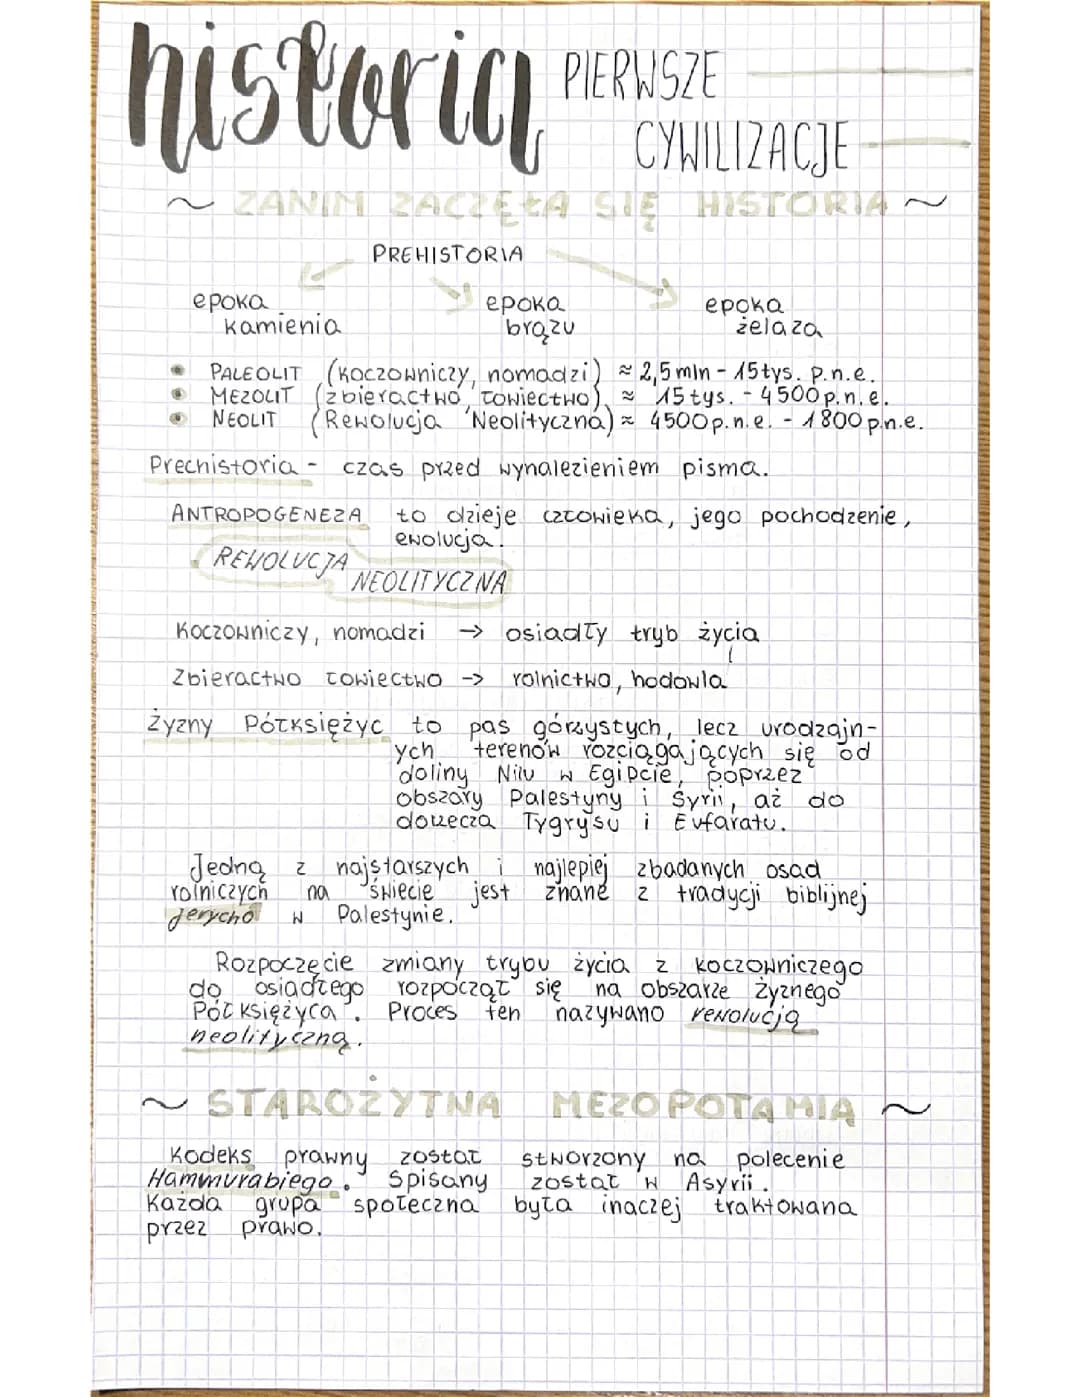 historia PIERWSZE
CYWILIZACJE
~ ZANIM ZACZĘŁA SIĘ HISTORIA ~
PREHISTORIA
epoka kamienia
epoka brązu
epoka żelaza
• PALEOLIT (koczowniczy, nomadzi) ≈ 2,5 mln - 15 tys. p.n.e.
• MEZOLIT (zbieractwo, łowiectwo) ≈ 15 tys. - 4500 p.n.e.
• NEOLIT (Rewolucja Neolityczna) ≈ 4500 p.n.e. - 1800 p.n.e.
Prechistoria - czas przed wynalezieniem pisma.
ANTROPOGENEZA to dzieje człowieka, jego pochodzenie,
ewolucja.
REWOLUCJA
NEOLITYCZNA
Koczowniczy, nomadzi → osiadły tryb życia
Zbieractwo łowiectwo → rolnictwo, hodowla
Żyzny Półksiężyc to pas górzystych, lecz urodzajn-
ych terenów rozciągających się od
doliny Nilu w Egipcie, poprzez
obszary Palestyny i Syrii, aż do
dorzecza Tygrysu i Eufaratu.
Jedną z najstarszych i najlepiej zbadanych osad
rolniczych na świecie jest znane z tradycji biblijnej
Jerycho w Palestynie.
Rozpoczęcie zmiany trybu życia z koczowniczego
do osiadłego rozpoczął się na obszarze żyznego
Półksiężyca. Proces ten nazywano rewolucją
neolityczną.
~ STAROŻYTNA MEZOPOTAMIA ~
Kodeks prawny został stworzony na polecenie
Hammurabiego. Spisany został w Asyrii.
Każda grupa społeczna była inaczej traktowana
przez prawo.